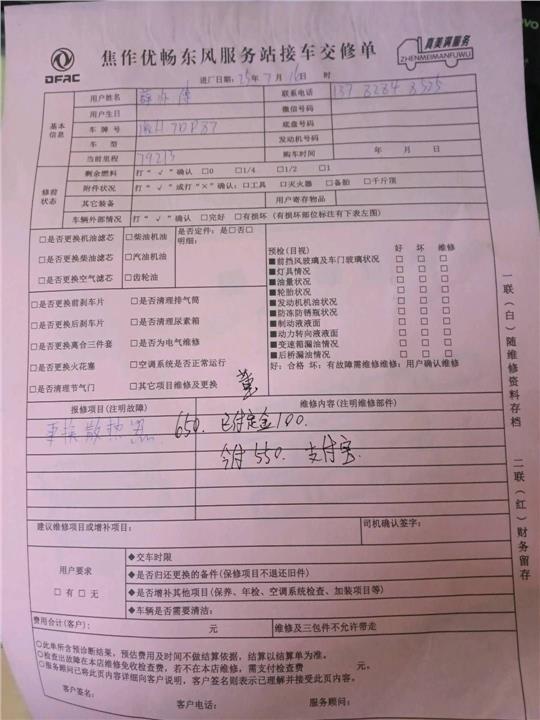 DFAC
焦作优畅东风服务站接车交修单
真美满服务
ZHENMEIMANFUWU
进厂日期: 25年 7月 16日 时
基本信息
用户姓名 联系电话
用户生日 微信号码
车牌号 底盘号码
车型 发动机号码
当前里程 79213 购车时间 年 月 日
修前状态
剩余燃料 打“√”确认 □0 □1/4 □1/2 □1
附件状况 打“√”或打“×”确认: □工具 □灭火器 □备胎 □千斤顶
其它装备 用户寄存物品
车辆外部情况 打“√”确认 □完好 □有损坏 (有损坏部位标注有下表左图)
□是否更换机油滤芯 □柴油机油 是否定件: 是□否□
明细:
□是否更换柴油滤芯 □汽油机油
□是否更换空气滤芯 □齿轮油
□是否更换前刹车片 □是否清理排气筒
□是否更换后刹车片 □是否清理尿素箱
□是否更换离合三件套 □是否为电气维修
□是否更换火花塞 □空调系统是否正常运行
□是否清理节气门 □其它项目维修及更换
预检(目视) 好 坏 维修
■前挡风玻璃及车门玻璃状况 □ □ □
■灯具情况 □ □ □
■油量状况 □ □ □
■轮胎状况 □ □ □
■发动机机油状况 □ □ □
■防冻防锈瓶状况 □ □ □
■制动液液面 □ □ □
■动力转向液液面 □ □ □
■变速箱漏油情况 □ □ □
■后桥漏油情况 □ □ □
好: 合格 坏: 有故障需维修维修: 用户确认维修
报修项目(注明故障) 维修内容(注明维修部件)
更换散热器 650. 已付定金100.
今付 550. 支付宝
建议维修项目或增补项目: 司机确认签字:
用户要求
□有 □无
◆交车时限
◆是否归还更换的备件(保修项目不退还旧件)
◆是否增补其他项目(保养、年检、空调系统检查、加装项目等)
◆车辆是否需要清洁:
费用合计(客户): 元 维修及三包件不允许带走
○此单所含预诊断结果,预估费用及时间不做结算依据,结算以结算单为准。
○检查出故障在本店维修免收检查费,若不在本店维修,需支付检查费 元。
○服务顾问已将此页内容详细向客户说明,客户签名则表示已理解并接受此页内容。
客户签名:
客户电话: 服务顾问:
一联(白)随维修资料存档
二联(红)财务留存